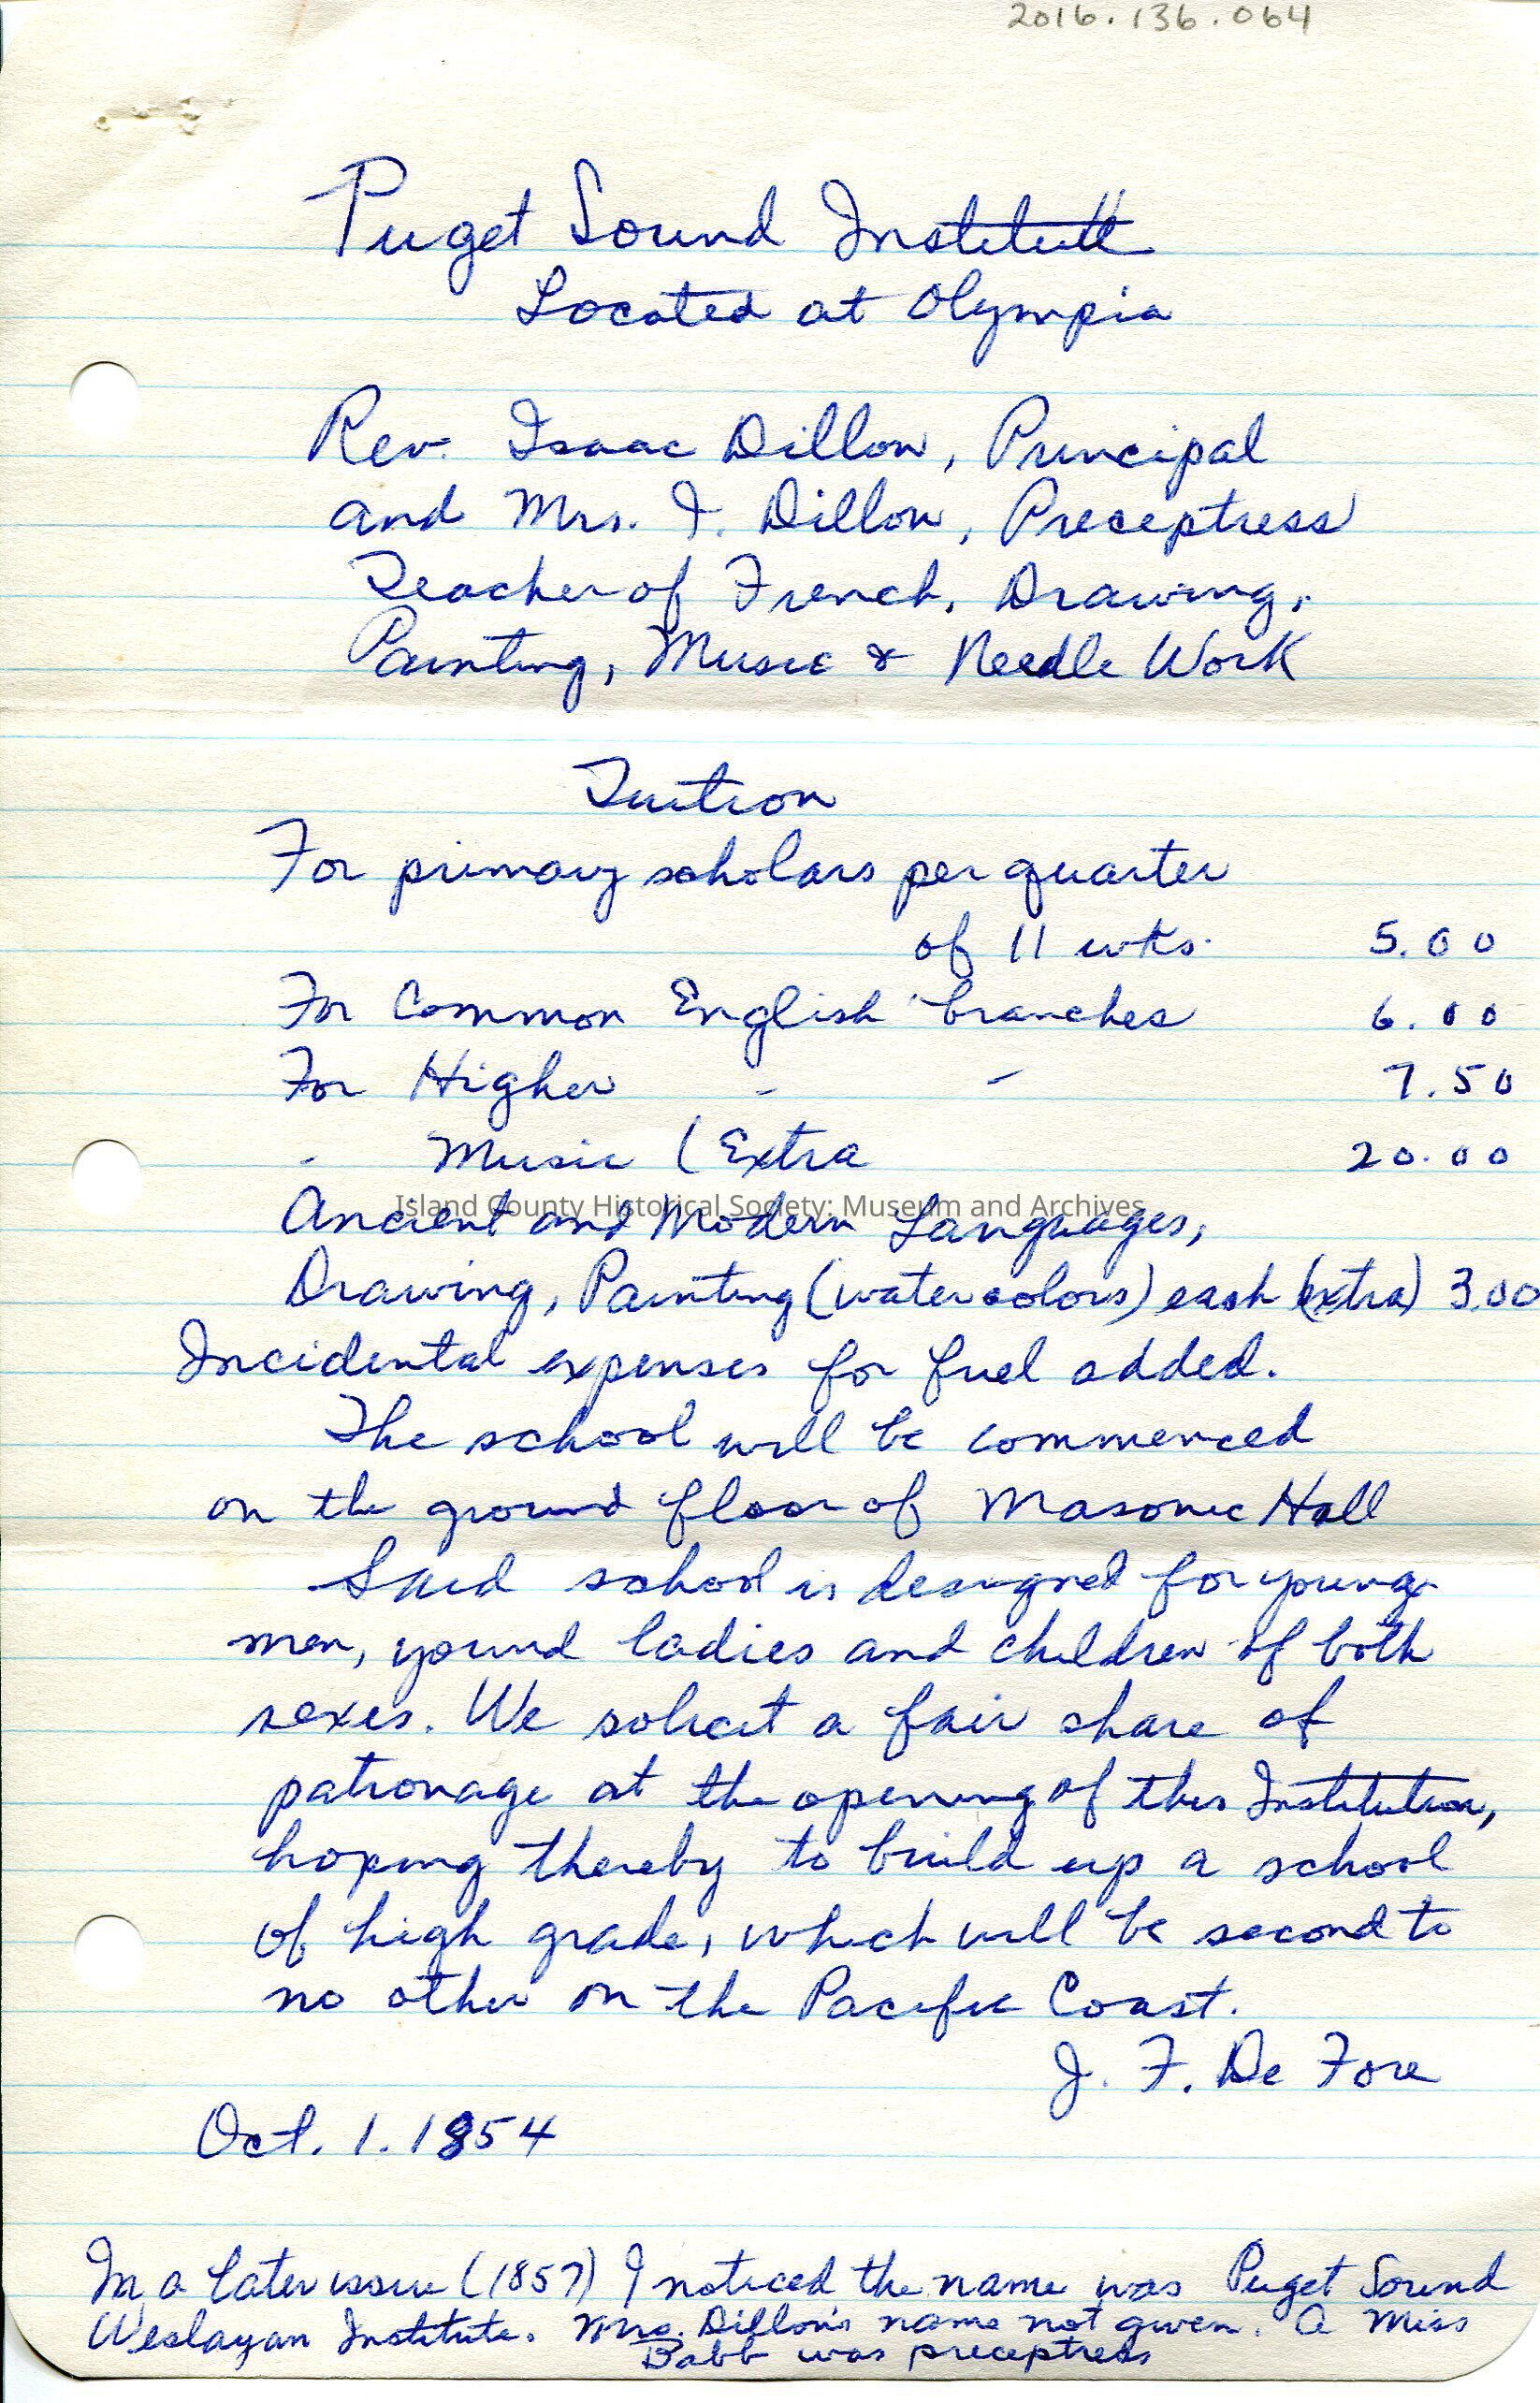 2016.136.064
Puget Sound Institute
Located at Olympia
Rev. Isaac Dillon, Principal
and Mrs. I. Dillon, Preceptress
Teacher of French, Drawing,
Painting, Music & Needle Work
Tuition
For primary scholars per quarter
of 11 wks. 5.00
For Common English branches 6.00
For Higher - - 7.50
- Music (Extra 20.00
Island County Historical Society: Museum and Archives
Ancient and Modern Languages,
Drawing, Painting (water colors) each (extra) 3.00
Incidental expenses for fuel added.
The school will be commenced
on the ground floor of Masonic Hall
Said school is designed for young
men, yound ladies and children of both
sexes. We solicit a fair share of
patronage at the opening of this Institution,
hoping thereby to build up a school
of high grade, which will be second to
no other on the Pacific Coast.
J. F. De Fore
Oct. 1. 1854
In a later issue (1857) I noticed the name was Puget Sound
Weslayan Institute. Mrs. Dillon's name not given. A Miss
Babb was preceptress